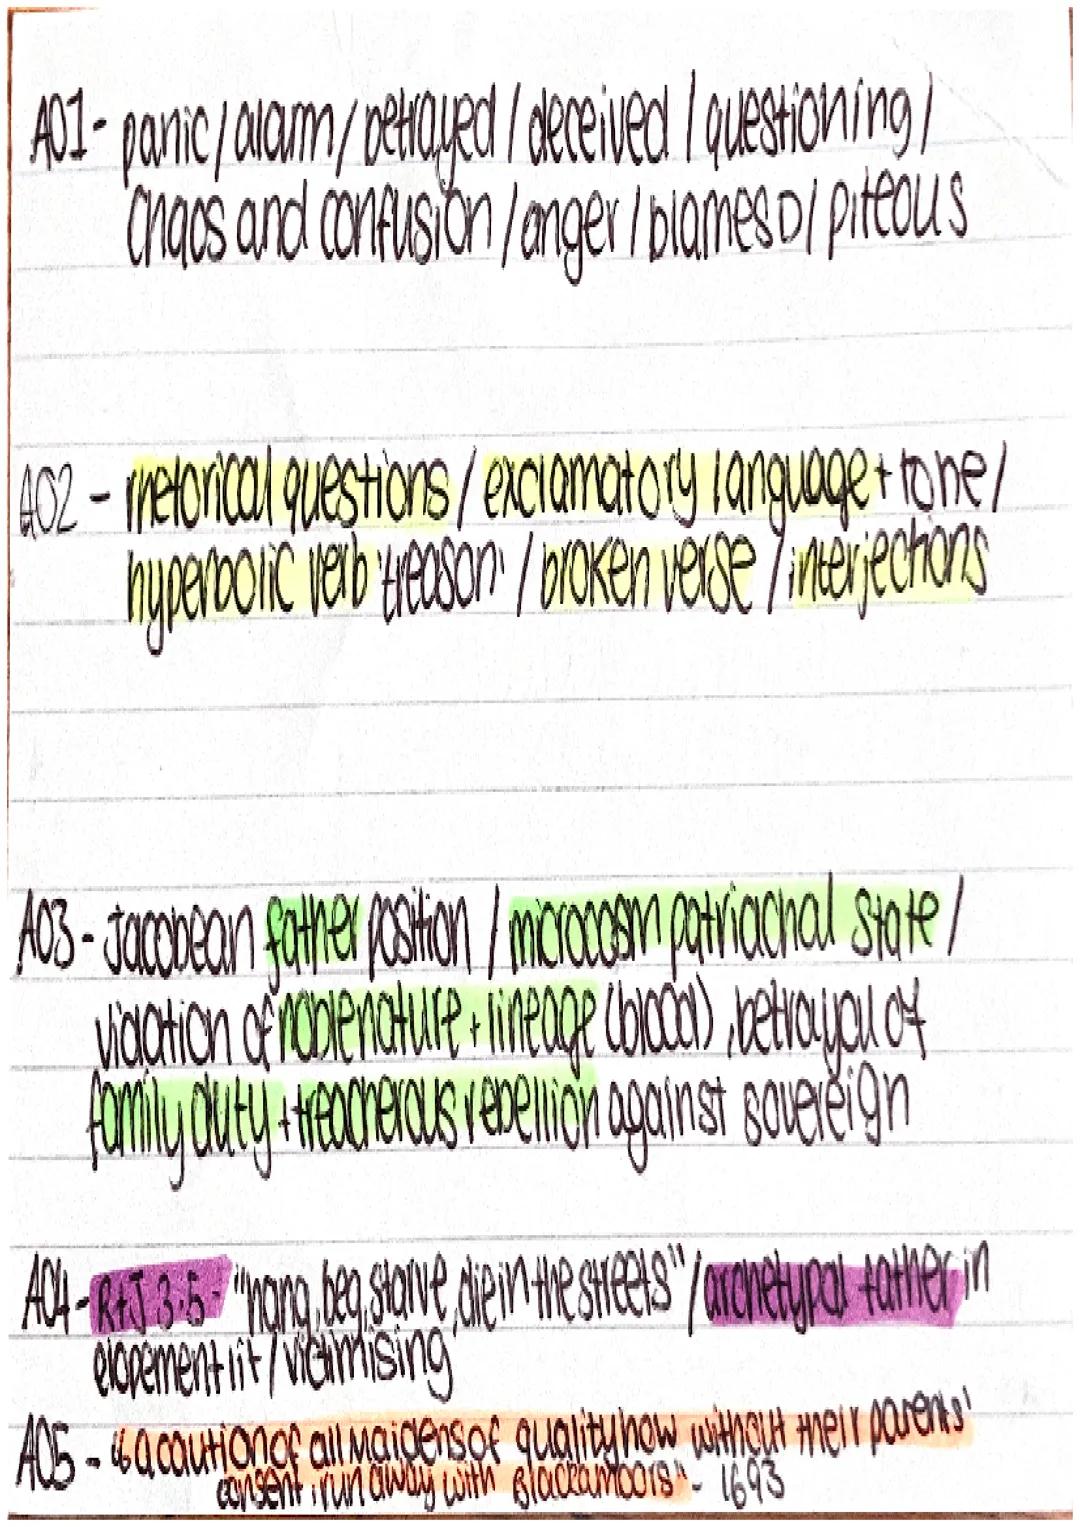 A01- panic/alarm/betrayed/deceived/questioning/
chaos and confusion/anger/blames D/piteous
A02 - rhetorical questions/exclamatory language + tone/
hyperbolic verb 'treason'/broken verse/interjections
A03- Jacobean father position/microcosm patriachal state/
violation of noble nature + lineage (blood), betrayal of
family duty + treacherous rebellion against sovereign
A04- R+J 3.5- "hang, beg, starve, die in the streets"/archetypal father in
elopement lit/victimising
A05- "a caution of all Maidens of quality how without their parents'
consent, run away with Blackamoors" - 1693